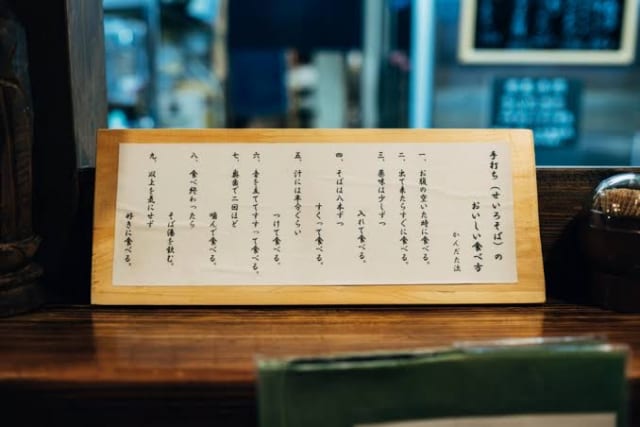 手打ち（せいろそば）の
おいしい食べ方
かんだた流
一、お腹の空いた時に食べる。
二、出て来たらすぐに食べる。
三、薬味は少しずつ
入れて食べる。
四、そばは八本ずつ
すくって食べる。
五、汁には半分ぐらい
つけて食べる。
六、音を立ててすすって食べる。
七、奥歯で二回ほど
噛んで食べる。
八、食べ終わったら
そば湯を飲む。
九、以上を気にせず
好きに食べる。